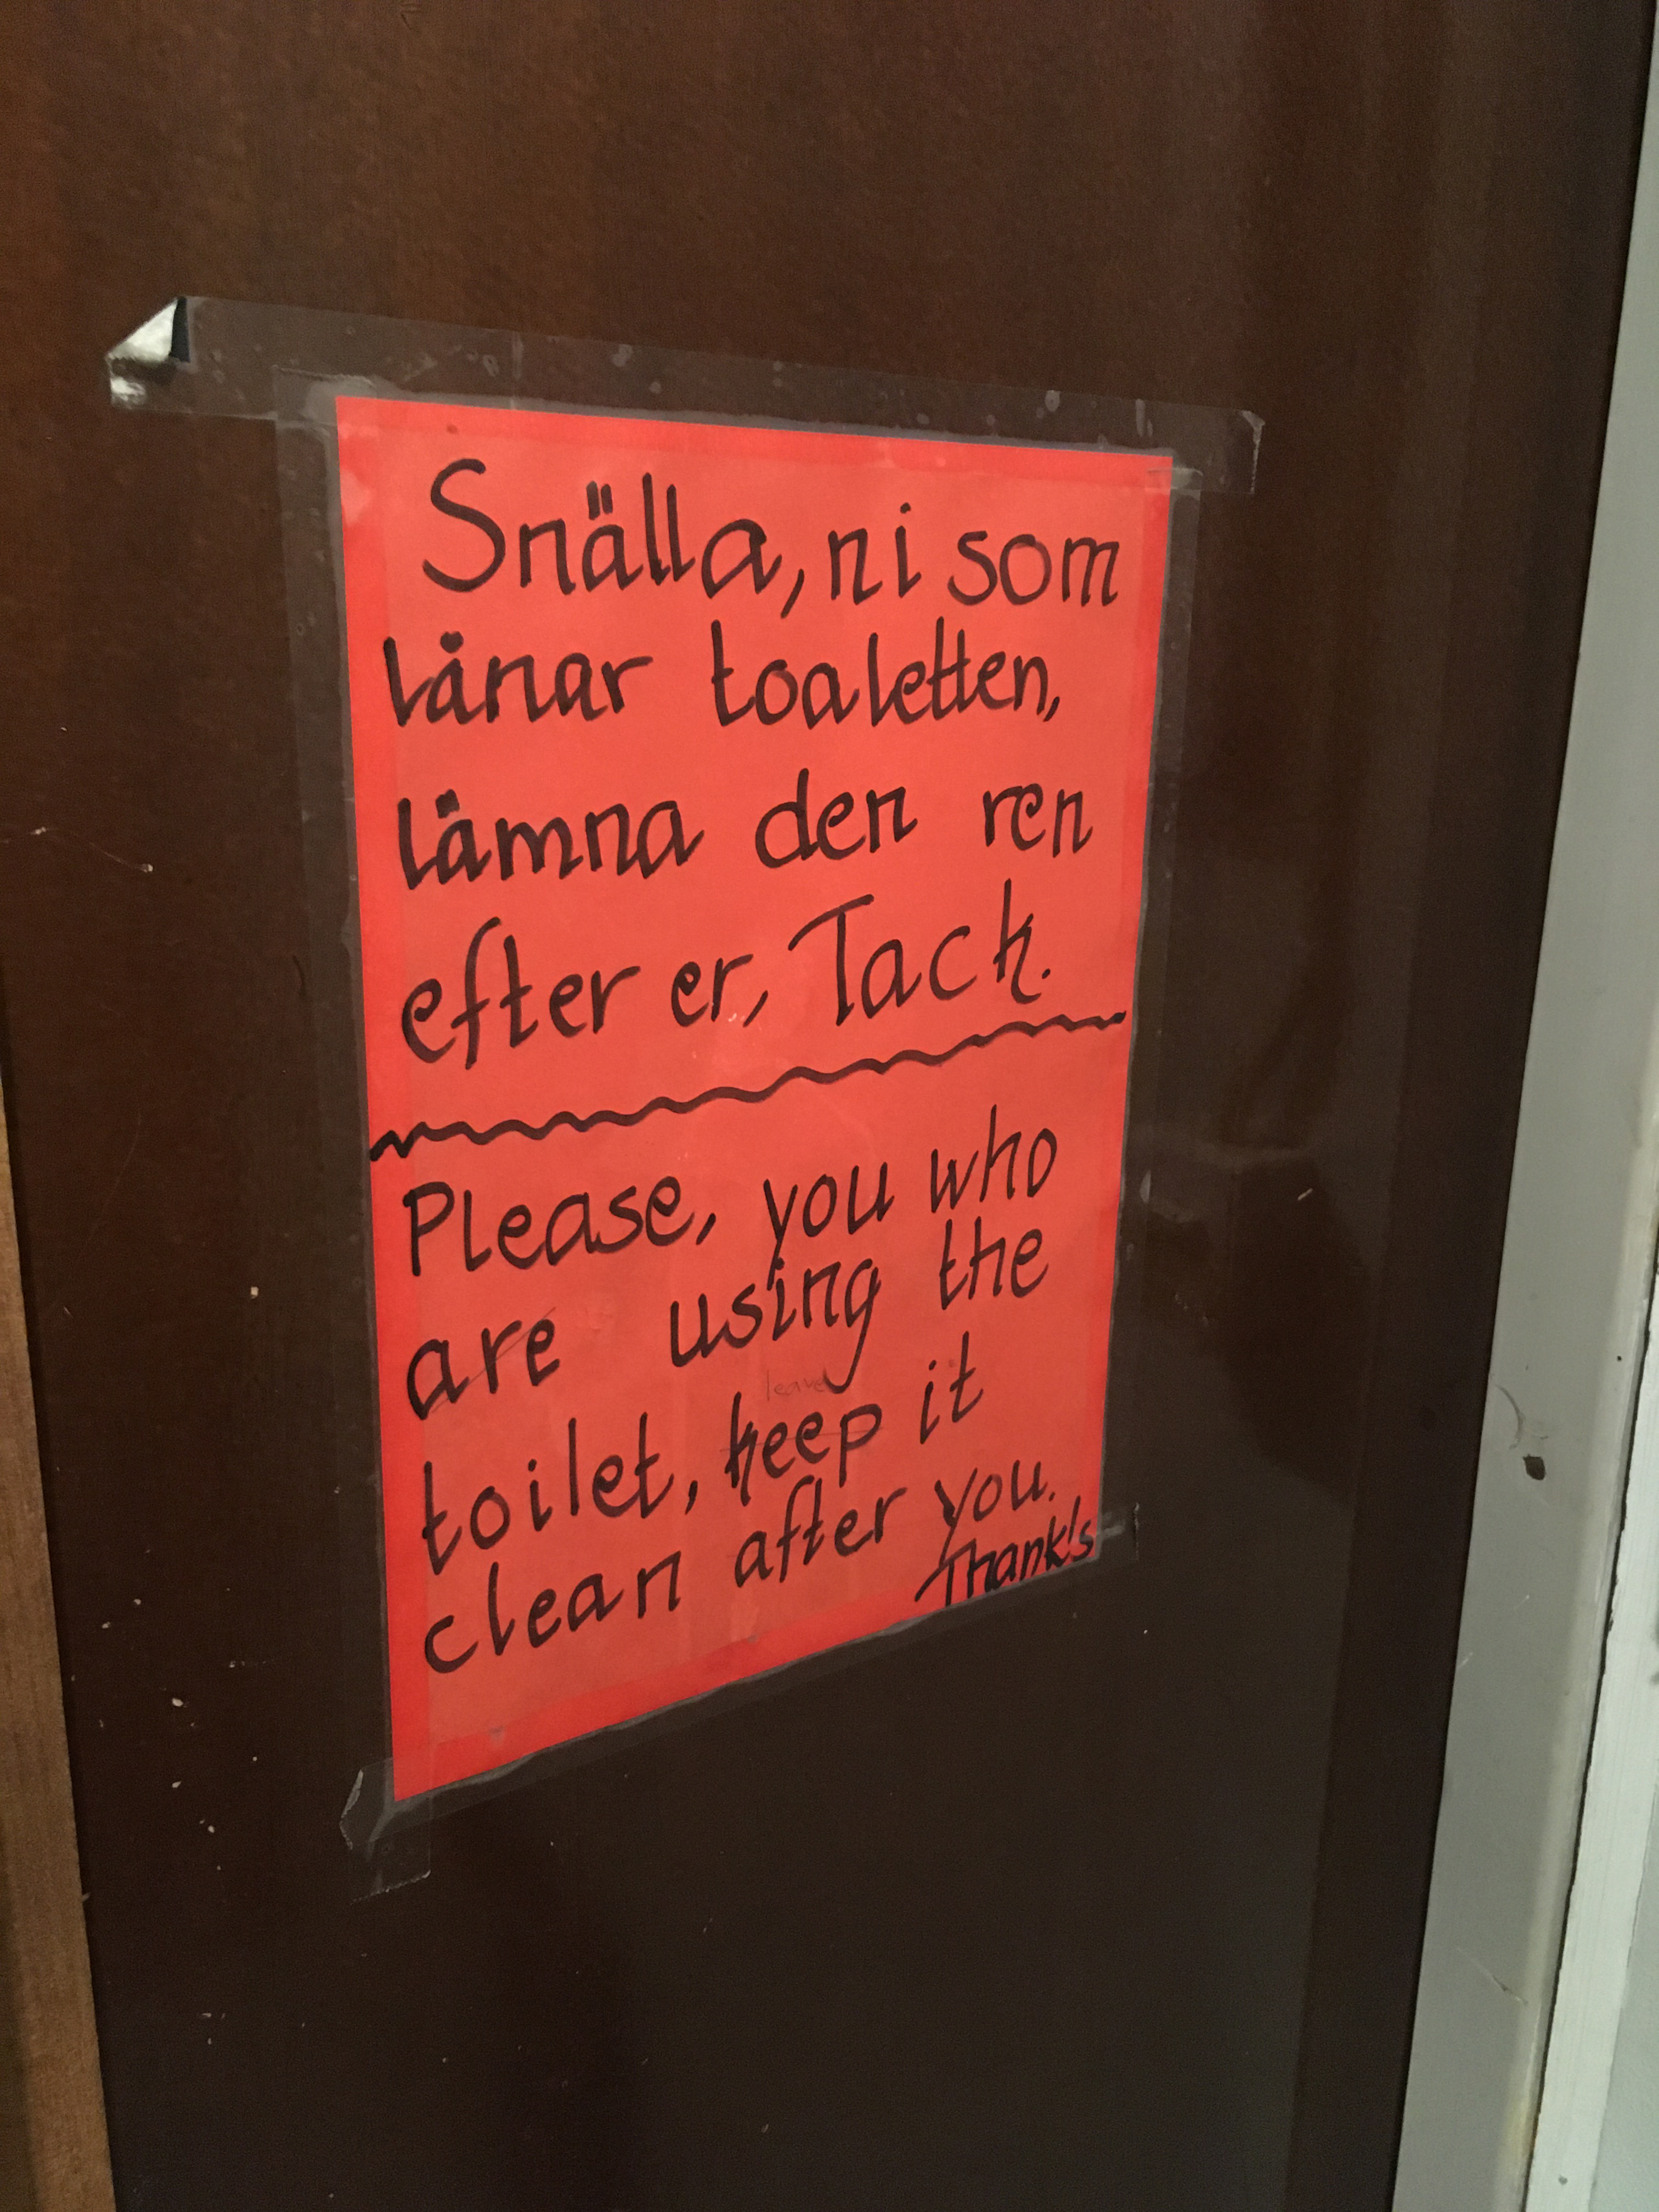 Snälla, ni som
lånar toaletten,
lämna den ren
efter er, Tack.
Please, you who
are using the
leave
toilet, keep it
clean after you.
Thank's